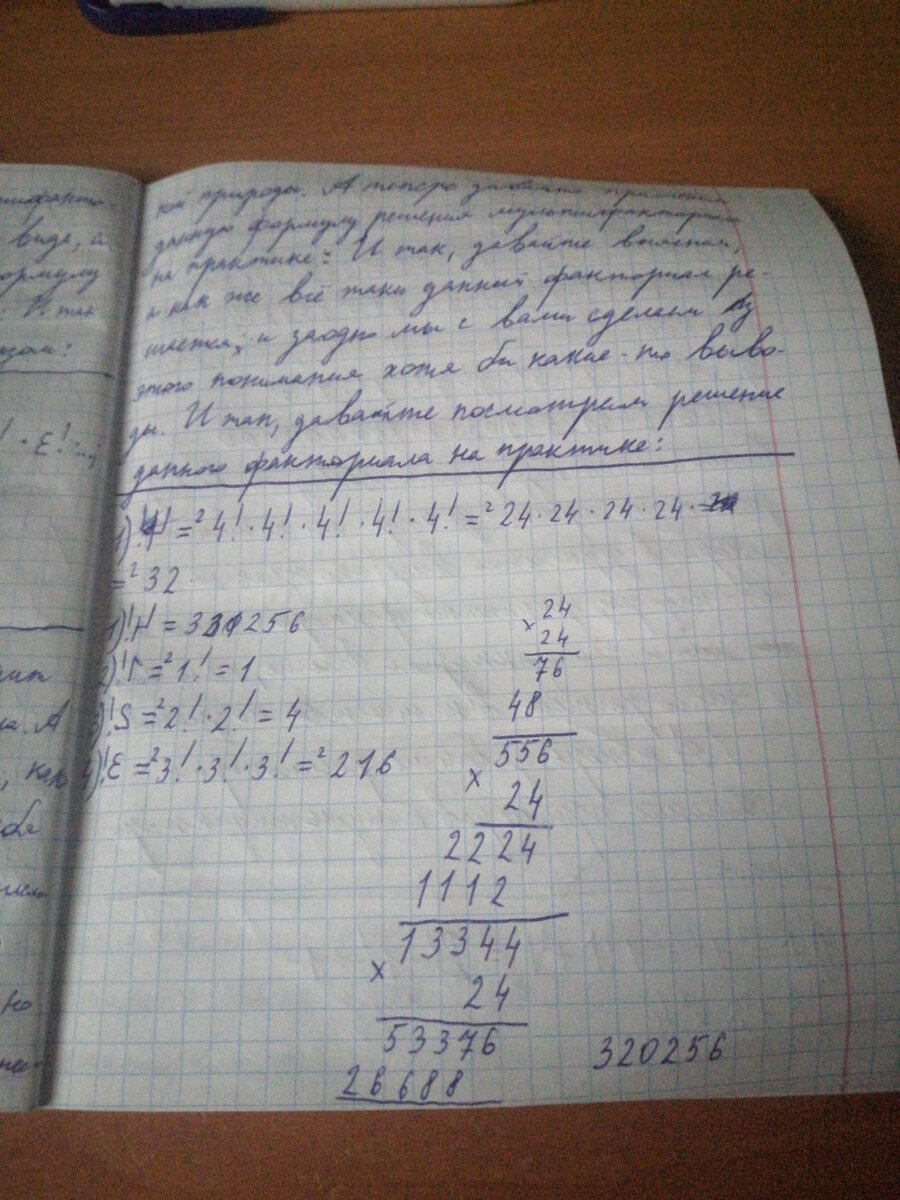 кой природы. А теперь давайте
данную формулу решения мультифакториала
на практике: И так, давайте выясним,
а как же всё таки данный факториал ре-
шается, и заодно мы с вами сделаем из
этого понимания хотя бы какие-то выво-
ды. И так, давайте посмотрим решение
данного факториала на практике:
=² 4! · 4! · 4! · 4! · 4! =² 24 · 24 · 24 · 24 ·
=² 32
= 256
=² 1! = 1
=² 2! · 2! = 4
=² 3! · 3! · 3! =² 216
× 24
24
76
48
556
× 24
2224
1112
13344
× 24
53376
26688
320256
виде, а
формулу
И так
· Ɛ!
А
но